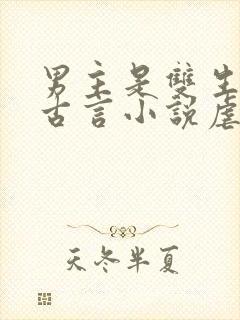 男主是雙生
古言小說虐
天冬半夏